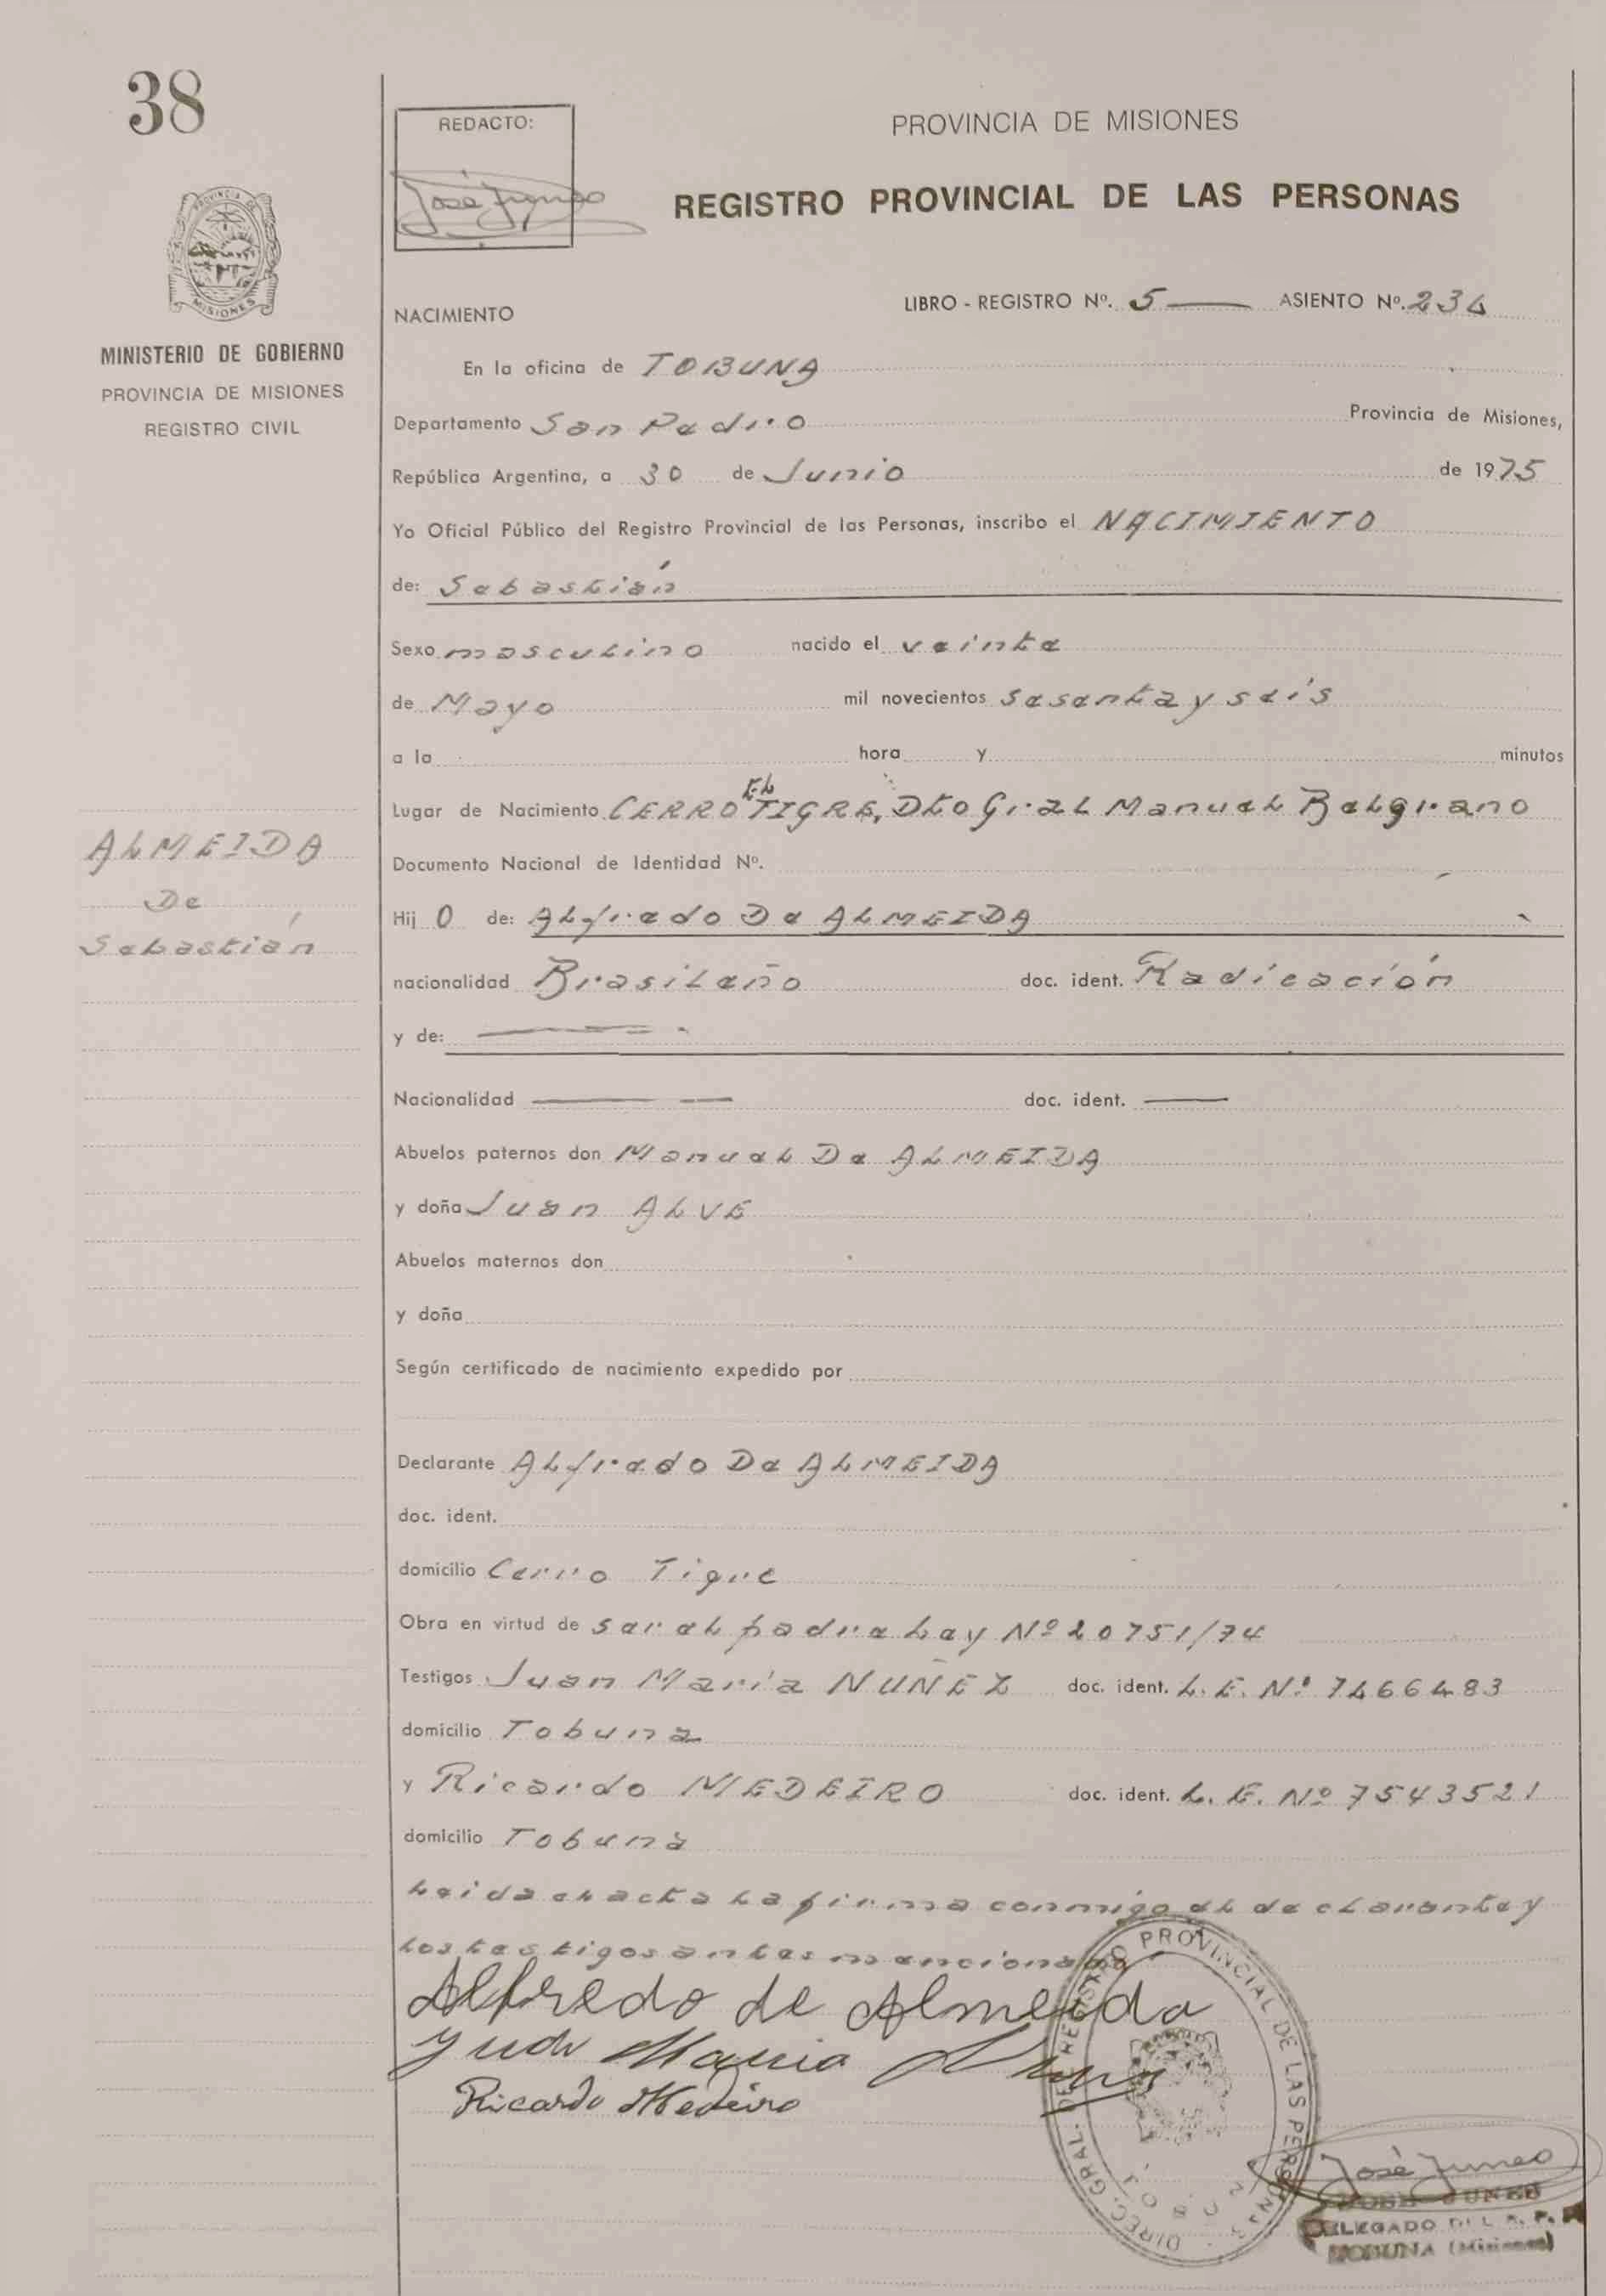 38
REDACTO:
José Juneo
PROVINCIA DE MISIONES
REGISTRO PROVINCIAL DE LAS PERSONAS
PROVINCIA DE
MISIONES
MINISTERIO DE GOBIERNO
PROVINCIA DE MISIONES
REGISTRO CIVIL
LIBRO - REGISTRO Nº. 5 — ASIENTO Nº. 234
NACIMIENTO
En la oficina de TOBUNA
Departamento San Pedro Provincia de Misiones,
República Argentina, a 30 de Junio de 1975
Yo Oficial Público del Registro Provincial de las Personas, inscribo el NACIMIENTO
de: Sebastián
Sexo masculino nacido el veinte
de Mayo mil novecientos sesenta y seis
a la hora y minutos
Lugar de Nacimiento CERRO EL TIGRE, Dto Gral Manuel Belgrano
Documento Nacional de Identidad Nº.
ALMEIDA
De
Sebastián
Hij o de: Alfredo De ALMEIDA
nacionalidad Brasileño doc. ident. Radicación
y de: —
Nacionalidad — — doc. ident. —
Abuelos paternos don Manuel De ALMEIDA
y doña Juan ALVE
Abuelos maternos don
y doña
Según certificado de nacimiento expedido por
Declarante Alfredo De ALMEIDA
doc. ident.
domicilio Cerro Tigre
Obra en virtud de ser el padre Ley Nº 20751/74
Testigos Juan María NUÑEZ doc. ident. L.E. Nº 7466483
domicilio Tobuna
y Ricardo MEDEIRO doc. ident. L.E. Nº 7543521
domicilio Tobuna
Leida el acta la firma conmigo el declarante y
los testigos antes mencionado
Alfredo de Almeida
Juan Maria Nunez
Ricardo Medeiro
DIREC. GRAL. DE REGISTRO PROVINCIAL DE LAS PERSONAS
José Juneo
JOSE JUNEO
DELEGADO DEL R. P. P.
TOBUNA (Misiones)